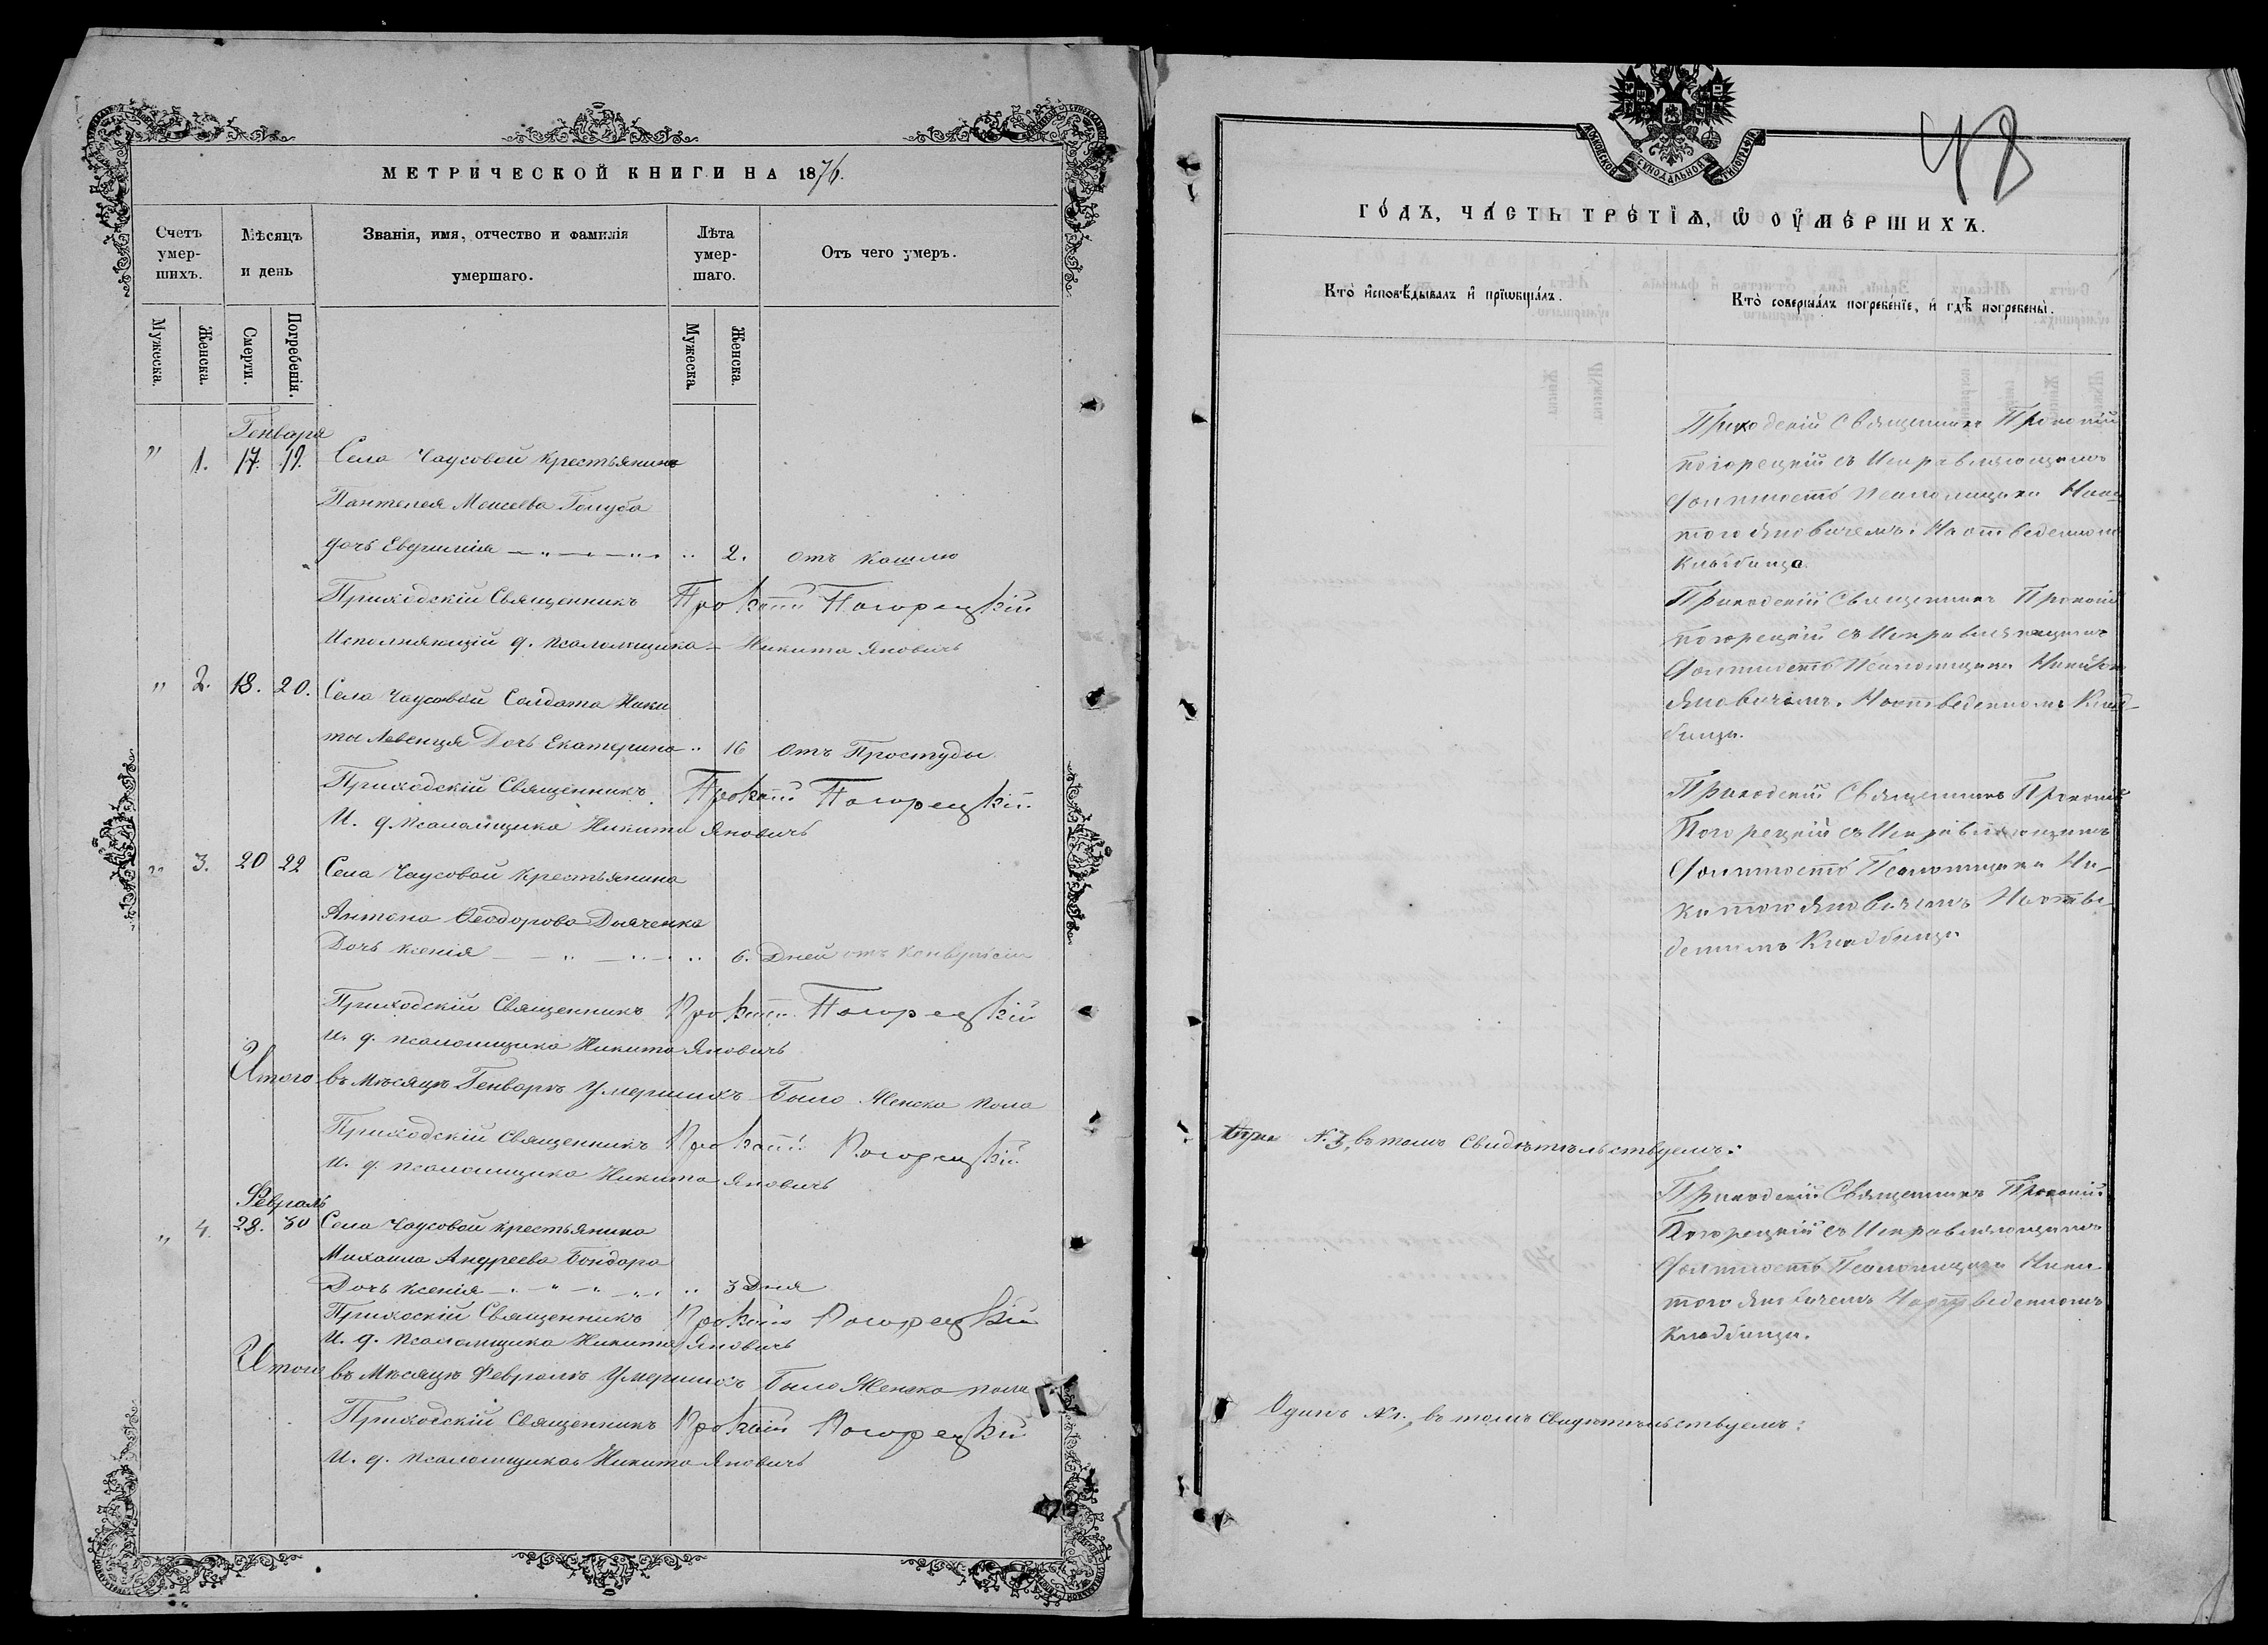 МЕТРИЧЕСКОЙ КНИГИ НА 1876.
Счетъ умершихъ.
Мѣсяцъ и день
Званія, имя, отчество и фамилія умершаго.
Лѣта умершаго.
Отъ чего умеръ.
Мужеска.
Женска.
Смерти.
Погребенія.
Мужеска
Женска.
Генваря
" 1. 17. 19. Села Чаусовой крестьянина
Пантелея Моисеева Голуба
дочь Евфимія " 2. отъ кашлю
Приходскій Священникъ Прокопій Погорецкій
Исполняющій д. псаломщика Никита Яновичъ
" 2. 18. 20. Села Чаусовой Солдата Ники
ты Левенця Дочь Екатерина " 16 отъ Простуды.
Приходскій Священникъ Прокопій Погорецкій
И. д. псаломщика Никита Яновичъ
" 3. 20 22 Села Чаусовой крестьянина
Антона Ѳеодорова Дьяченка
Дочь Ксенія " 6. Дней отъ конвульсіи
Приходскій Священникъ Прокопій Погорецкій
И. д. псаломщика Никита Яновичъ
Итого въ Мѣсяцѣ Генварѣ Умершихъ Было Женска пола
Приходскій Священникъ Прокопій Погорецкій
И. д. псаломщика Никита Яновичъ
Февраль
" 4. 28. 30 Села Чаусовой крестьянина
Михаила Андреева Бондаря
Дочь Ксенія " 3 Дня
Прихоскій Священникъ Прокопій Погорецкій
И. д. псаломщика Никита Яновичъ
Итого въ Мѣсяцѣ Февралѣ Умершихъ Было Женска пола
Приходскій Священникъ Прокопій Погорецкій
И. д. псаломщика Никита Яновичъ
МОСКОВСКОЙ СѴНОДАЛЬНОЙ ТИПОГРАФІИ
48
ГОДЪ, ЧАСТЬ ТРЕТІѦ, Ѡ ОУМЕРШИХЪ.
Кто исповѣдывалъ и прїѡбщалъ.
Кто совершалъ погребенїе, и гдѣ погребены.
Приходскій Священникъ Прокопій
Погорецкій съ Исправляющимъ
Должность Псаломщика Ники
тою Яновичемъ. На отведенномъ
Кладбищѣ.
Приходскій Священникъ Прокопій
Погорецкій съ Исправляющимъ
Должность Псаломщика Никитою
Яновичемъ. На отведенномъКлад-
бищѣ.
Приходскій Священникъ Прокопій
Погорецкій съ Исправляющимъ
Должность Псаломщика Ни-
китою Яновичемъ На отве
денномъ Кладбищѣ
N. 3, въ томъ Свидѣтельствуемъ:
Приходскій Священникъ Прокопій
Погорецкій съ Исправляющимъ
Должность Псаломщика Ники
тою Яновичемъ На отведенномъ
Кладбищѣ.
Одинъ N 1., въ томъ Свидѣтельствуемъ: